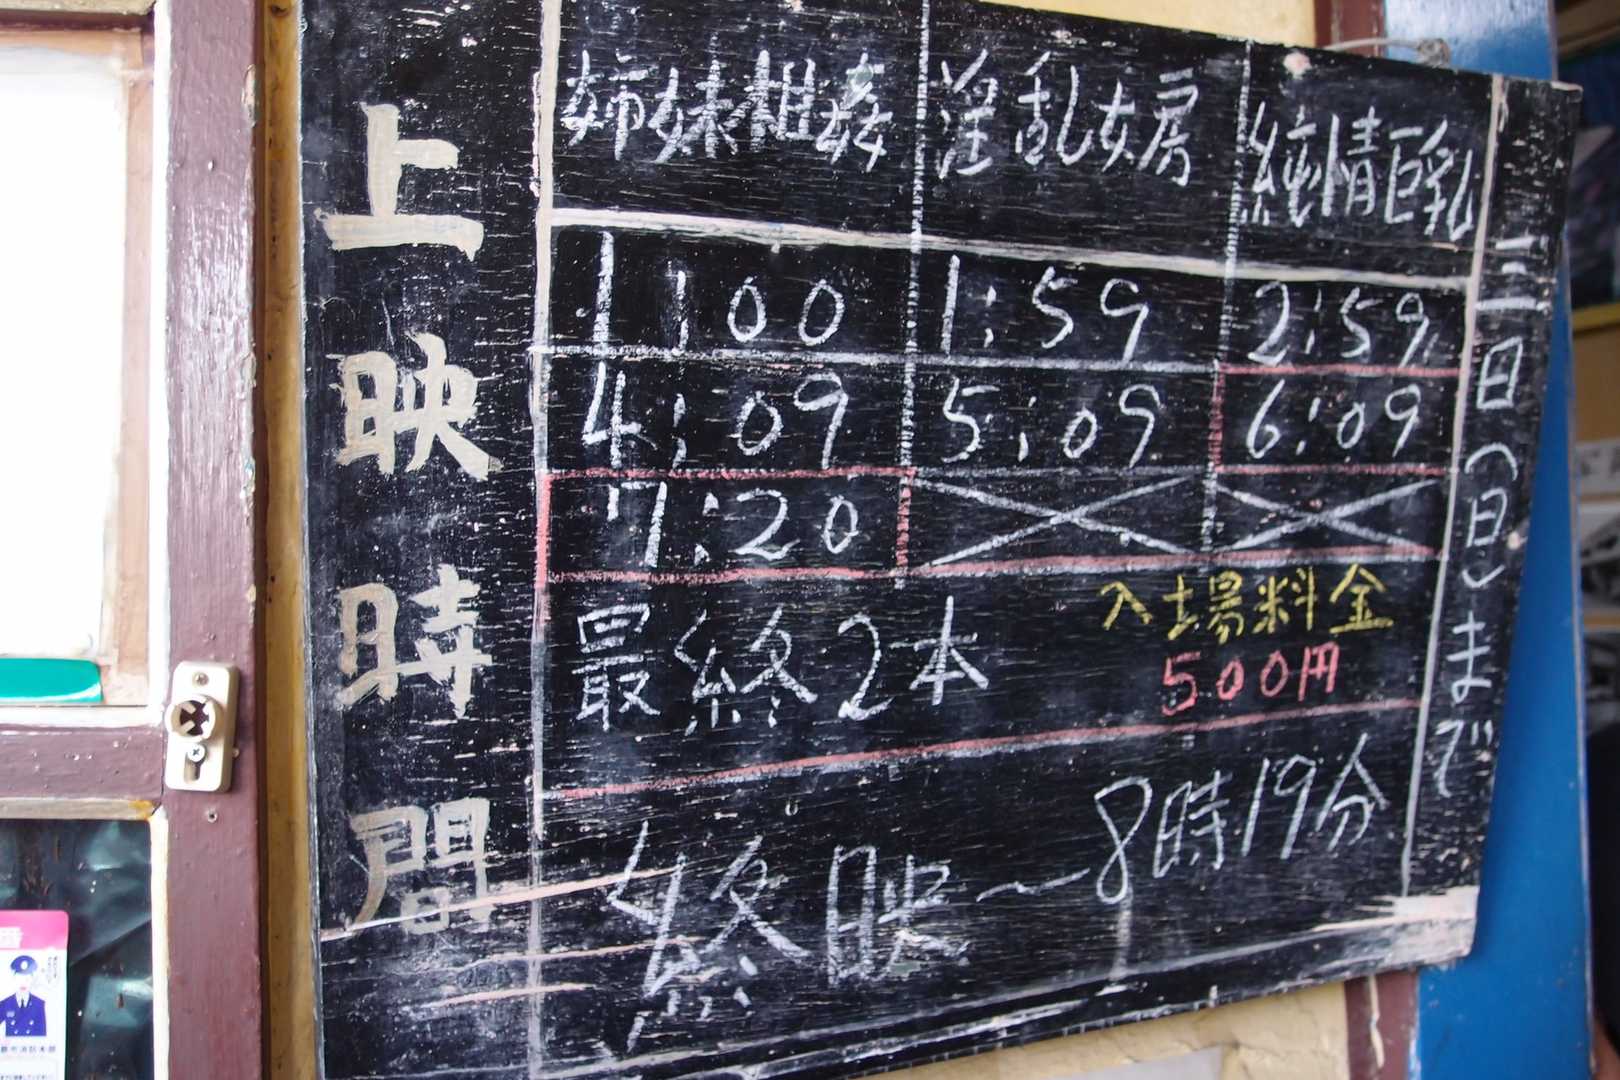 上映時間
姉妹相姦 淫乱女房 純情巨乳
1:00 1:59 2:59
4:09 5:09 6:09
7:20
最終2本
入場料金
500円
終映〜8時19分
三日(日)まで